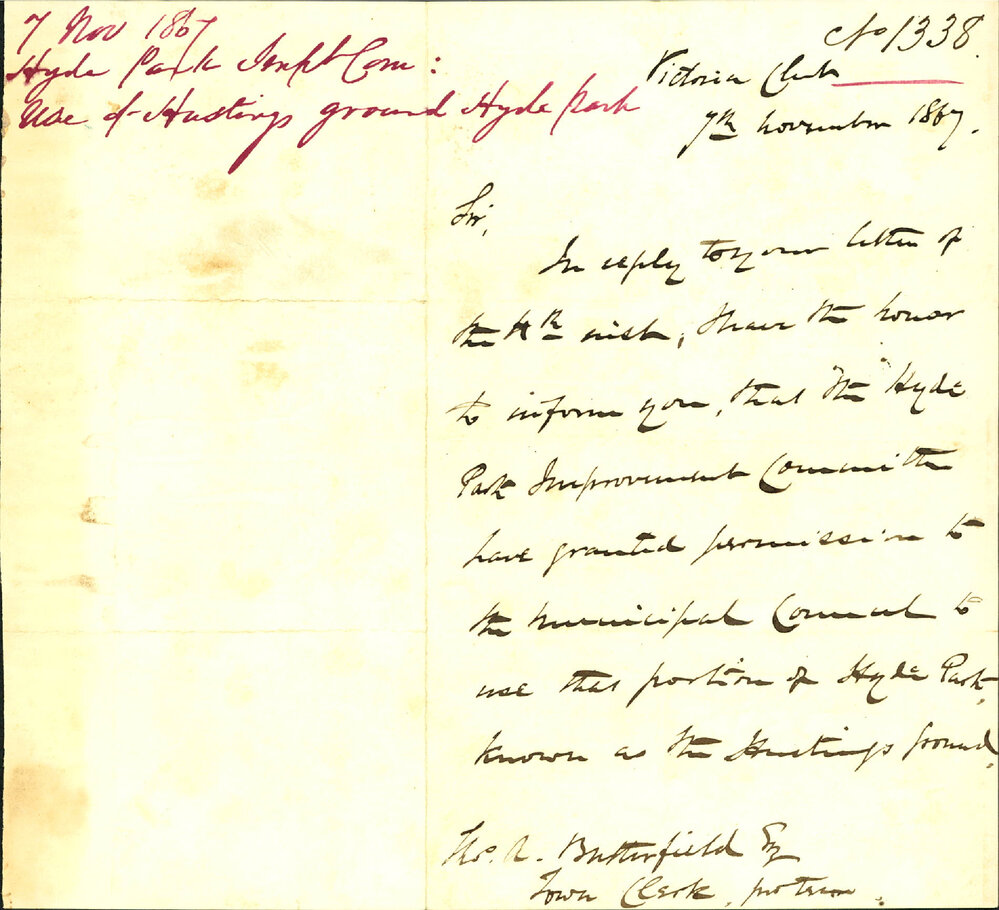 7 Nov 1867
Hyde Park Impt Com:
Use of Hustings ground Hyde Park
No 1338
Victoria Club
7th November 1867.
Sir,
In reply to your letter of
the 4th inst, I have the honor
to inform you, that the "Hyde
Park Improvement Committee
have granted permission to
the Municipal Council to
use that portion of Hyde Park,
known as the Hustings ground.
Thos. A. Butterfield Esq
Town Clerk, pro tem.